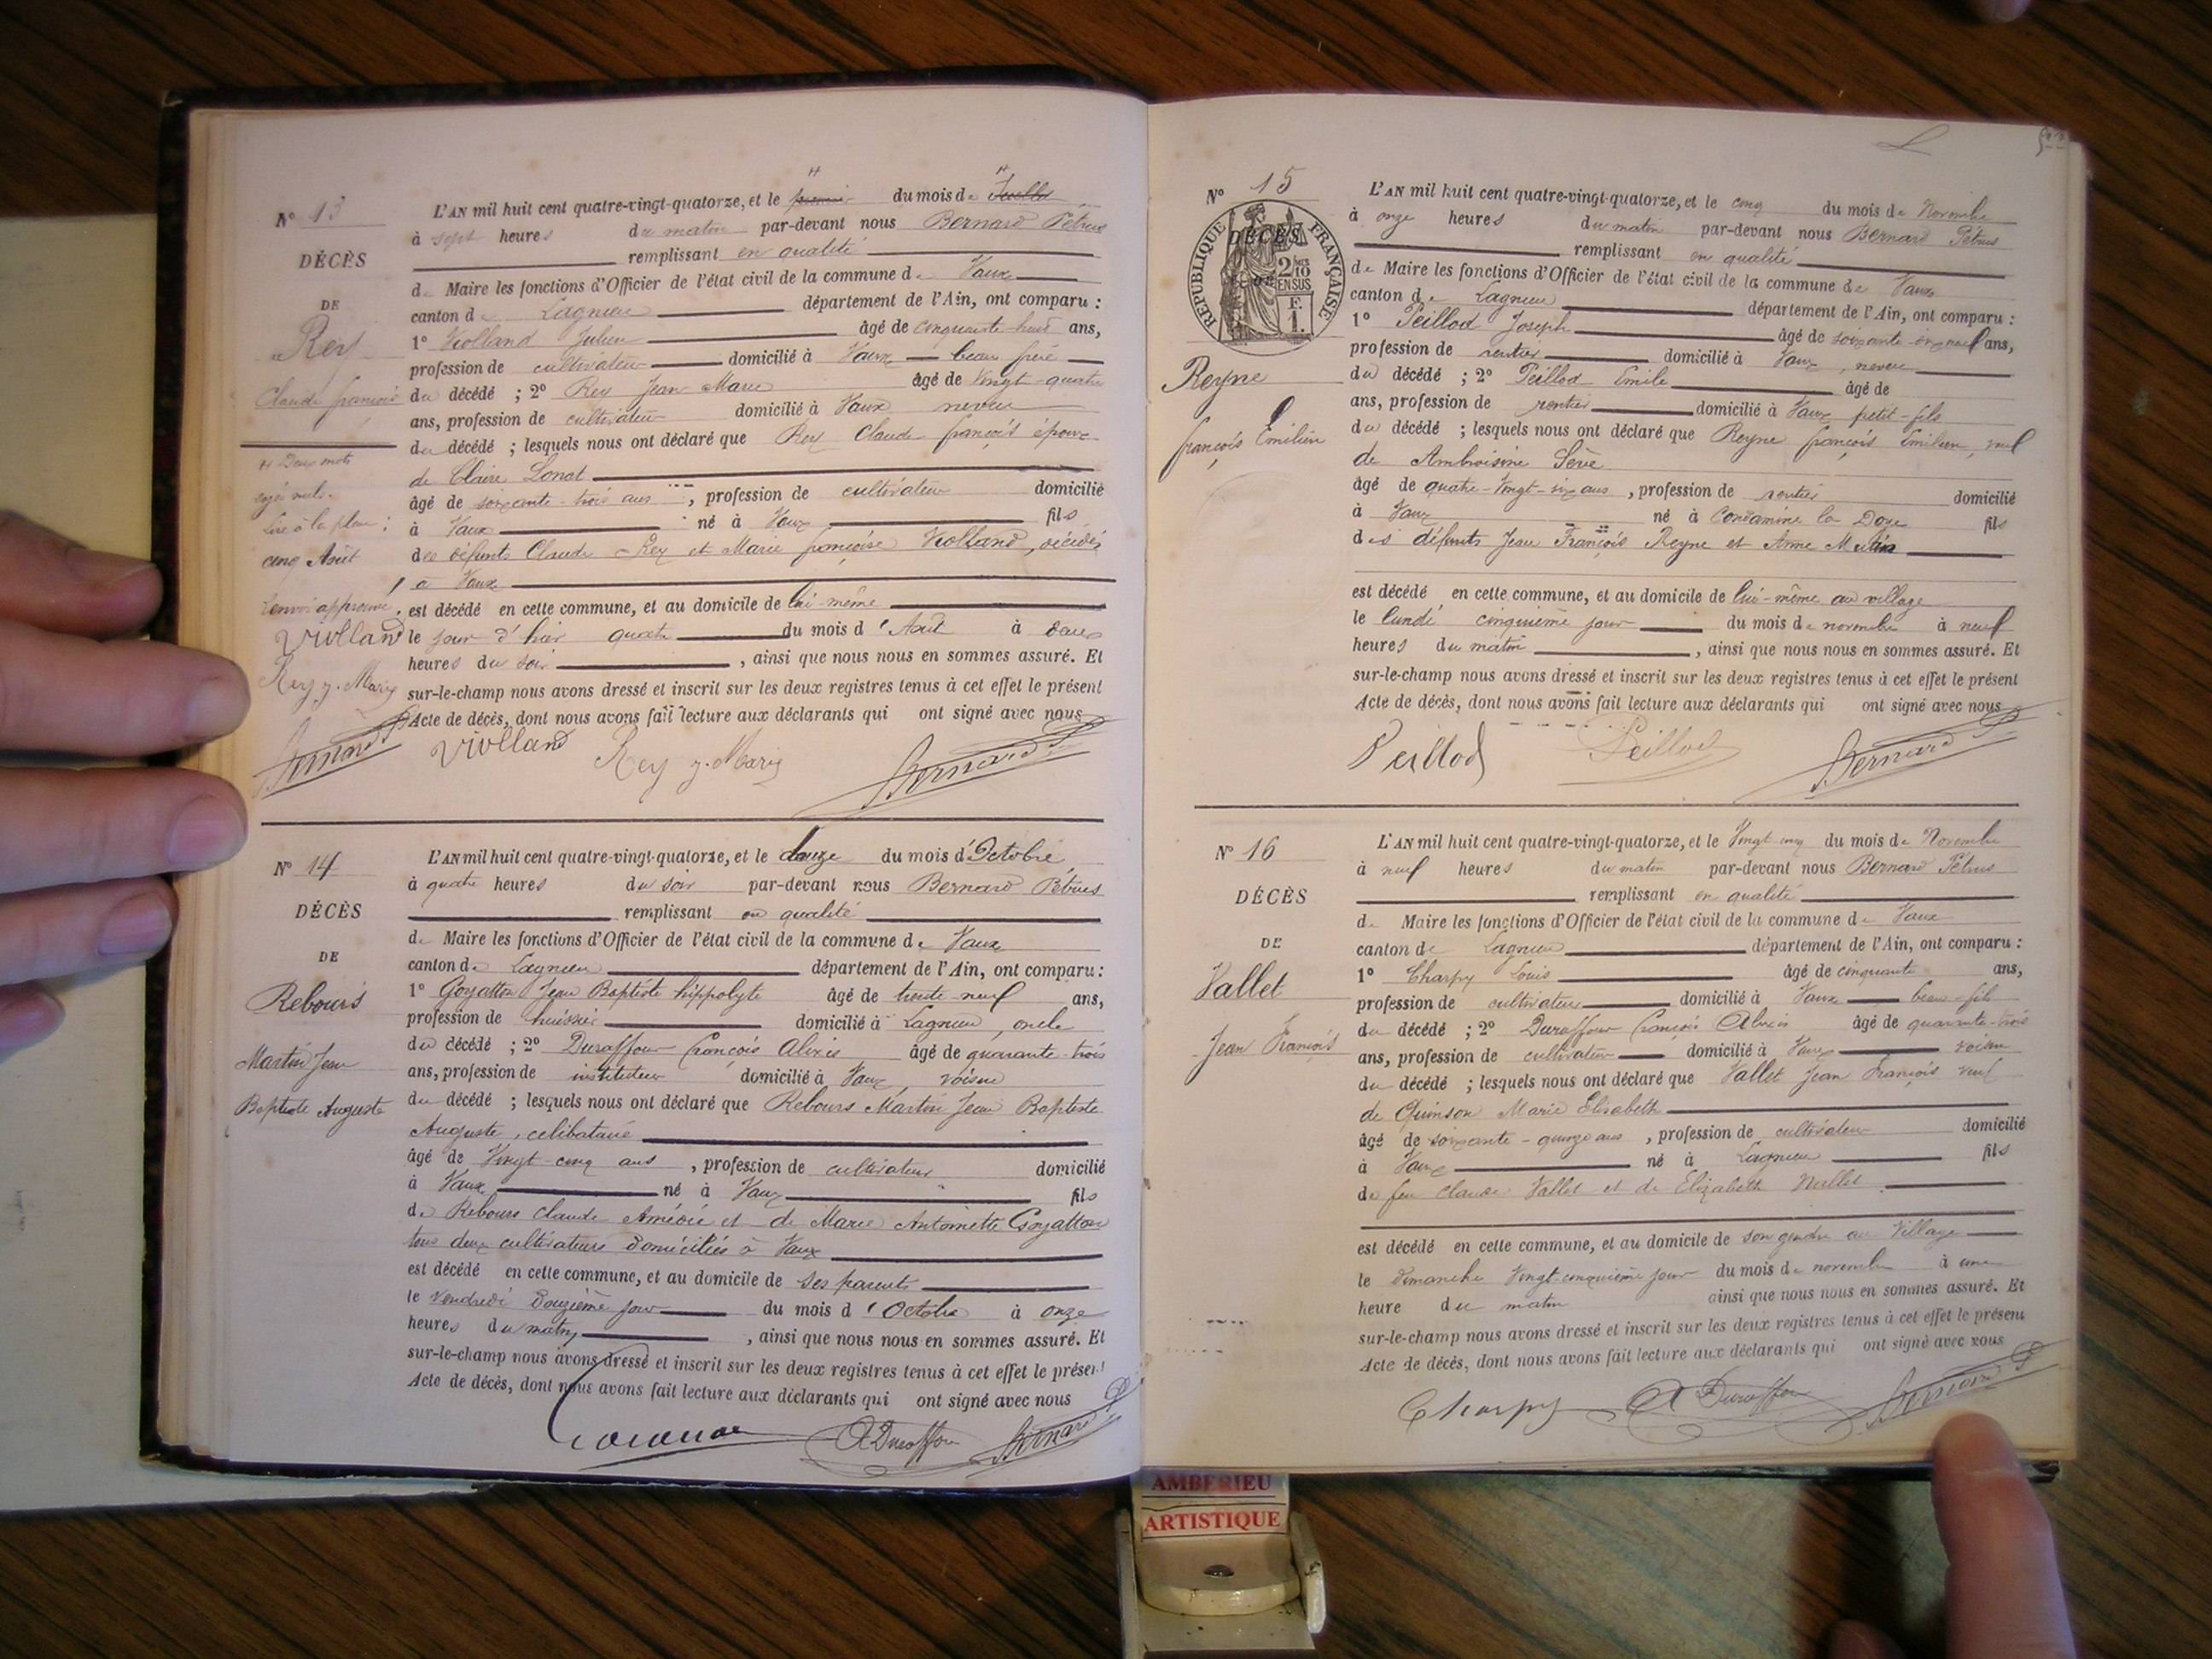 Nº 13
DÉCÈS
DE
Rey
Claude françois
H Deux mots
rayés nuls.
Lire à la place :
cinq Août
Renvoi approuvé.
Violland
Rey J. Marie
Bernard P
L'AN mil huit cent quatre-vingt-quatorze, et le premier du mois de Juillet
à sept heures du matin par-devant nous Bernard Pétrus
remplissant en qualité
de Maire les fonctions d'Officier de l'état civil de la commune de Vaux
canton de Lagnieu département de l'Ain, ont comparu :
1º Violland Julien âgé de cinquante-huit ans,
profession de cultivateur domicilié à Vaux beau frère
du décédé ; 2º Rey Jean Marie âgé de Vingt-quatre
ans, profession de cultivateur domicilié à Vaux neveu
du décédé ; lesquels nous ont déclaré que Rey Claude françois époux
de Claire Lonat
âgé de soixante-trois ans, profession de cultivateur domicilié
à Vaux né à Vaux fils
des défunts Claude Rey et Marie françoise Violland, décédés
à Vaux
est décédé en cette commune, et au domicile de lui-même
le jour d'hier quatre du mois d'Août à deux
heures du soir, ainsi que nous nous en sommes assuré. Et
sur-le-champ nous avons dressé et inscrit sur les deux registres tenus à cet effet le présent
Acte de décès, dont nous avons fait lecture aux déclarants qui ont signé avec nous
Violland Rey J. Marie Bernard P
Nº 14
DÉCÈS
DE
Rebours
Martin Jean
Baptiste Auguste
L'AN mil huit cent quatre-vingt-quatorze, et le douze du mois d'Octobre
à quatre heures du soir par-devant nous Bernard Pétrus
remplissant en qualité
de Maire les fonctions d'Officier de l'état civil de la commune de Vaux
canton de Lagnieu département de l'Ain, ont comparu :
1º Goyatton Jean Baptiste hippolyte âgé de trente-neuf ans,
profession de huissier domicilié à Lagnieu, oncle
du décédé ; 2º Duraffour François Alexis âgé de quarante-trois
ans, profession de instituteur domicilié à Vaux, voisin
du décédé ; lesquels nous ont déclaré que Rebours Martin Jean Baptiste
Auguste, célibataire
âgé de Vingt-cinq ans, profession de cultivateur domicilié
à Vaux né à Vaux fils
de Rebours Claude Amédée et de Marie Antoinette Goyatton
tous deux cultivateurs domiciliés à Vaux
est décédé en cette commune, et au domicile de ses parents
le Vendredi douzième jour du mois d'Octobre à onze
heures du matin, ainsi que nous nous en sommes assuré. Et
sur-le-champ nous avons dressé et inscrit sur les deux registres tenus à cet effet le présent
Acte de décès, dont nous avons fait lecture aux déclarants qui ont signé avec nous
A Duraffour Bernard P
Nº 15
RÉPUBLIQUE FRANÇAISE
DÉCÈS
2/10 EN SUS
F. 1.
Reyne
françois Emilien
L'AN mil huit cent quatre-vingt-quatorze, et le cinq du mois de Novembre
à onze heures du matin par-devant nous Bernard Pétrus
remplissant en qualité
de Maire les fonctions d'Officier de l'état civil de la commune de Vaux
canton de Lagnieu département de l'Ain, ont comparu :
1º Peillod Joseph âgé de soixante-neuf ans,
profession de rentier domicilié à Vaux, neveu
du décédé ; 2º Peillod Emile âgé de
ans, profession de rentier domicilié à Vaux petit-fils
du décédé ; lesquels nous ont déclaré que Reyne françois Emilien, veuf
de Ambroisine Sève
âgé de quatre-Vingt-six ans, profession de rentier domicilié
à Vaux né à Condamine la Doye fils
des défunts Jean François Reyne et Anne
est décédé en cette commune, et au domicile de lui-même au village
le lundi cinquième jour du mois de novembre à neuf
heures du matin, ainsi que nous nous en sommes assuré. Et
sur-le-champ nous avons dressé et inscrit sur les deux registres tenus à cet effet le présent
Acte de décès, dont nous avons fait lecture aux déclarants qui ont signé avec nous
Peillod Peillod Bernard P
Nº 16
DÉCÈS
DE
Vallet
Jean François
L'AN mil huit cent quatre-vingt-quatorze, et le Vingt-cinq du mois de Novembre
à neuf heures du matin par-devant nous Bernard Pétrus
remplissant en qualité
de Maire les fonctions d'Officier de l'état civil de la commune de Vaux
canton de Lagnieu département de l'Ain, ont comparu :
1º Charpy Louis âgé de cinquante ans,
profession de cultivateur domicilié à Vaux beau-fils
du décédé ; 2º Duraffour François Alexis âgé de quarante-trois
ans, profession de cultivateur domicilié à Vaux voisin
du décédé ; lesquels nous ont déclaré que Vallet Jean François veuf
de Quinson Marie Elisabeth
âgé de soixante-quinze ans, profession de cultivateur domicilié
à Vaux né à Lagnieu fils
de feu Claude Vallet et de Elizabeth
est décédé en cette commune, et au domicile de son gendre au Village
le dimanche Vingt-cinquième jour du mois de novembre à une
heure du matin ainsi que nous nous en sommes assuré. Et
sur-le-champ nous avons dressé et inscrit sur les deux registres tenus à cet effet le présent
Acte de décès, dont nous avons fait lecture aux déclarants qui ont signé avec nous
Charpy A Duraffour Bernard P
AMBERIEU
ARTISTIQUE